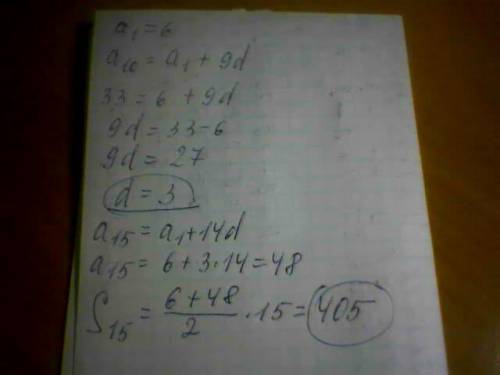 a₁ = 6
a₁₀ = a₁ + 9d
33 = 6 + 9d
9d = 33 - 6
9d = 27
d = 3
a₁₅ = a₁ + 14d
a₁₅ = 6 + 3 · 14 = 48
S₁₅ = (6 + 48)/2 · 15 = 405